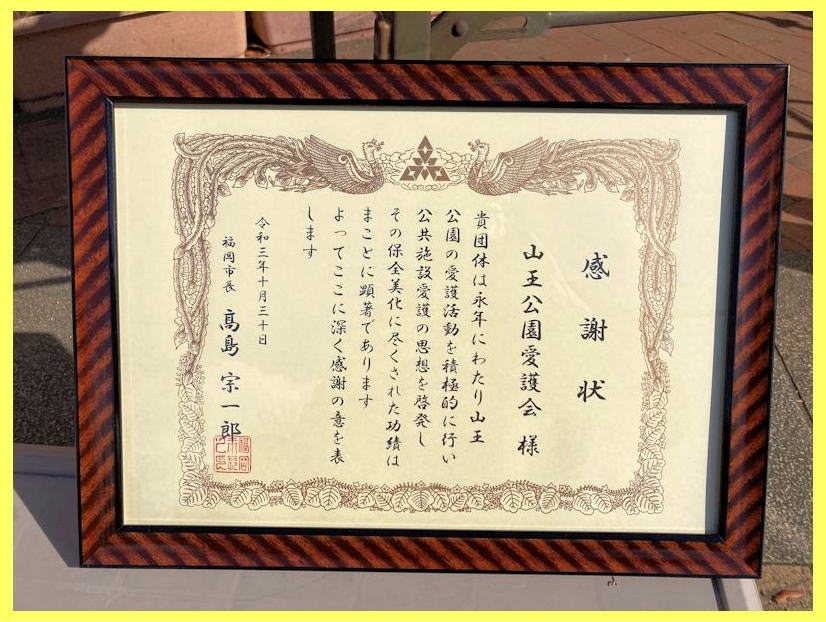 感謝状
山王公園愛護会 様
貴団体は永年にわたり山王
公園の愛護活動を積極的に行い
公共施設愛護の思想を啓発し
その保全美化に尽くされた功績は
まことに顕著であります
よってここに深く感謝の意を表
します
令和三年十月三十日
福岡市長 髙島 宗一郎